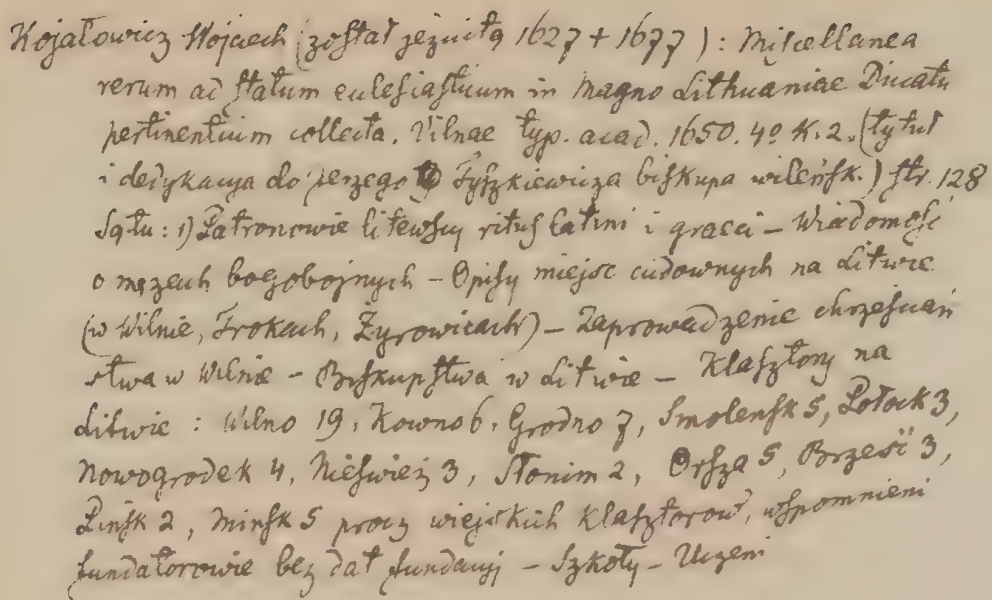 Kojałowicz Wojciech (został jezuitą 1627 + 1677): Miscellanea
rerum ad statum eclesiasticum in Magno Lithuaniae Ducatu
pertinentium collecta. Vilnae typ. acad. 1650. 4o K. 2. (tytuł
i dedykacya do Jerzego Tyszkiewicza biskupa wileńsk.) str. 128
Są tu: 1) Patronowie litewscy ritus latini i graeci – Wiadomość
o mężach bogobojnych – Opisy miejsc cudownych na Litwie
(w Wilnie, Trokach, Żyrowicach) – Zaprowadzenie chrześcijań
stwa w Wilnie – Biskupstwa w Litwie – Klasztory na
Litwie : Wilno 19, Kowno 6, Grodno 7, Smoleńsk 5, Połock 3,
Nowogrodek 4, Nieśwież 3, Słonim 2, Orsza 5, Brześć 3,
Pińsk 2, Mińsk 5 procz wiejskich klasztorow, wspomnieni
fundatorowie bez dat fundacyj – Szkoły – Uczeni